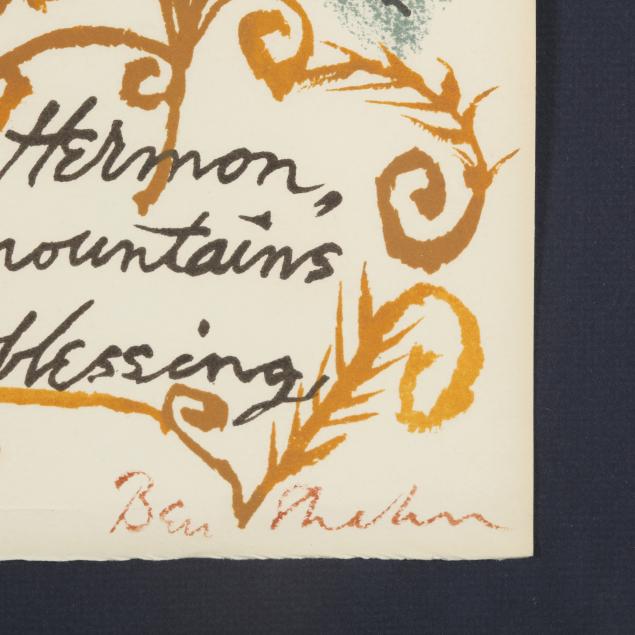 Hermon,
mountains
blessing,
Ben Shahn